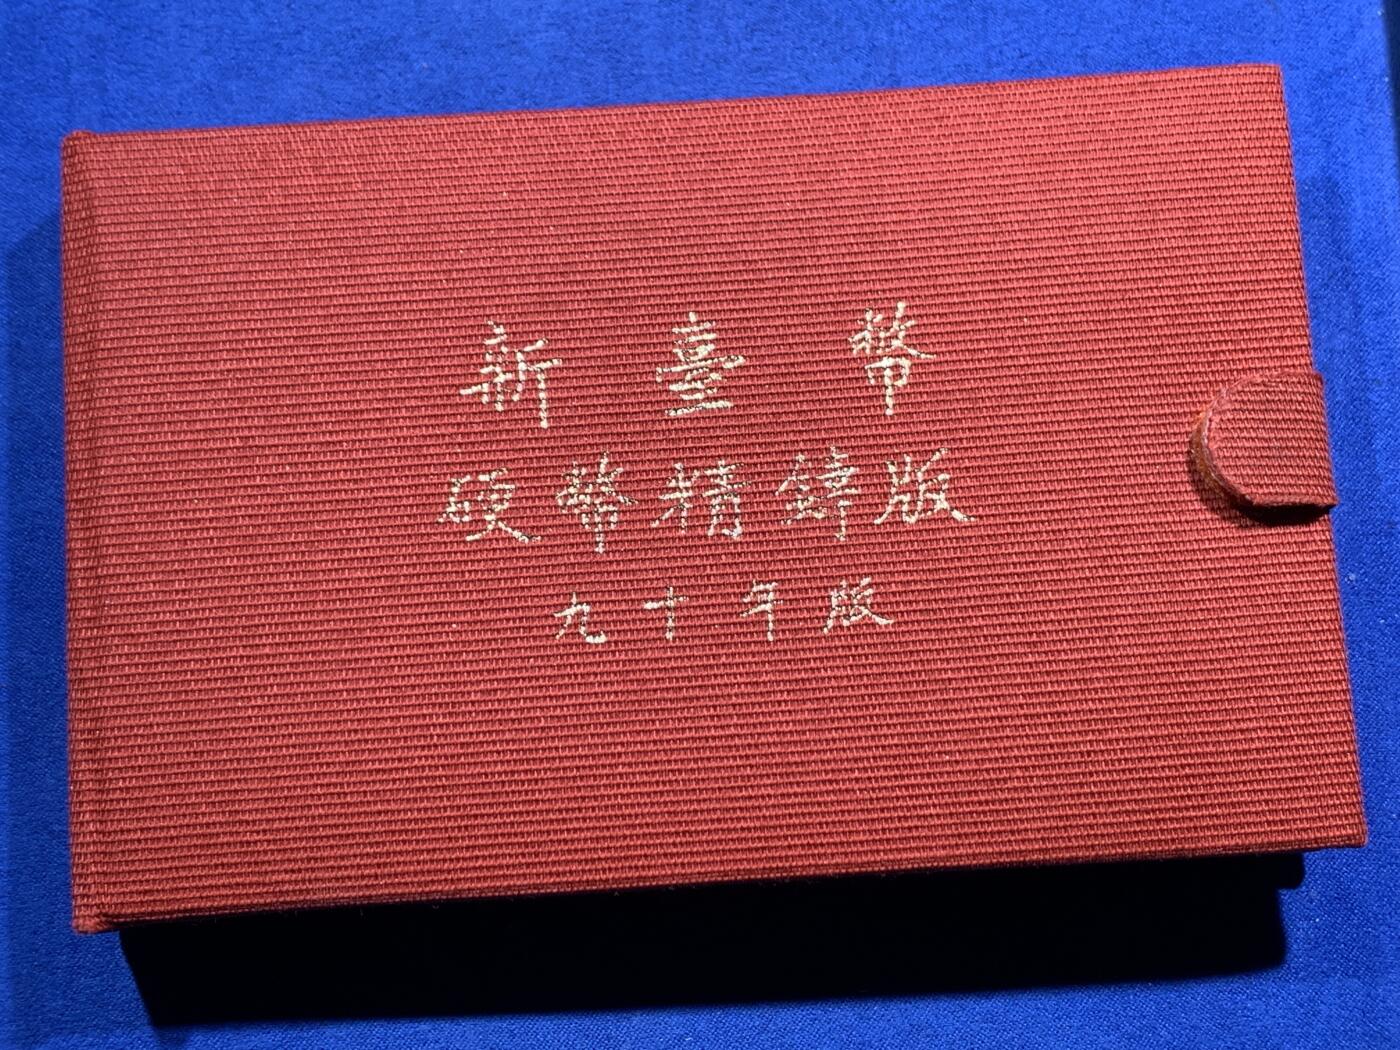 新臺幣
硬幣精鑄版
九十年版